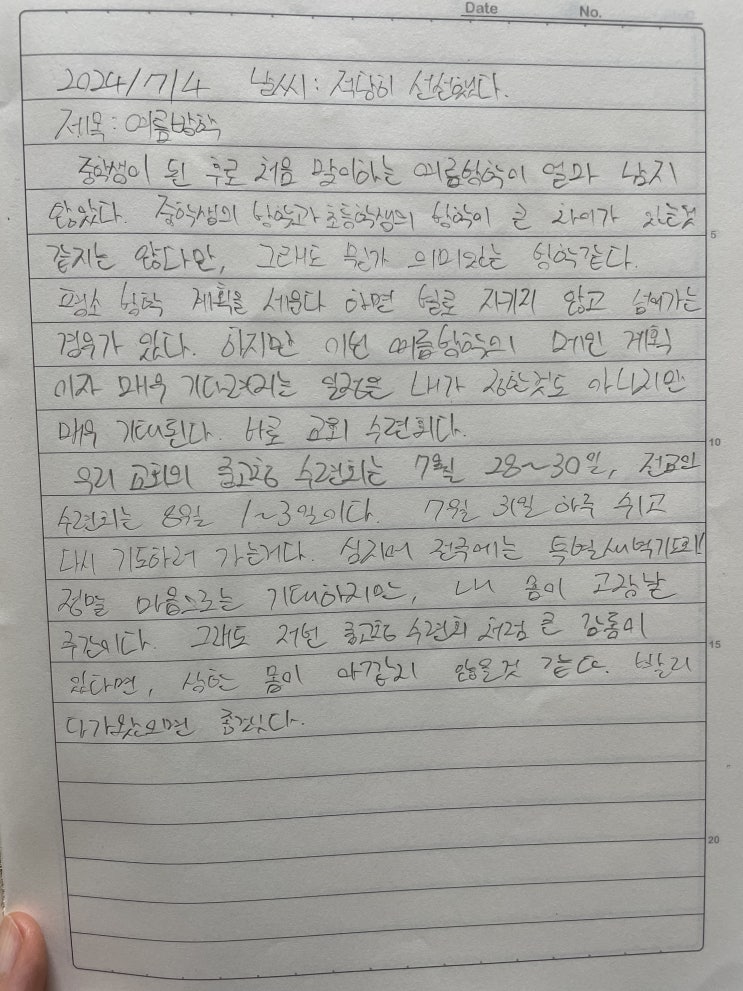 Date No.
2024/7/4 날씨: 적당히 선선했다.
제목: 여름방학
중학생이 된 후로 처음 맞이하는 여름방학이 얼마 남지
않았다. 중학생의 방학과 초등학생의 방학이 큰 차이가 있는것
같지는 않다만, 그래도 뭔가 의미있는 방학같다.
평소 방학 계획을 세운다 하면 별로 지키지 않고 넘어가는
경우가 있다. 하지만 이번 여름방학의 메인 계획
이자 매우 기다려지는 일정은 내가 정한것도 아니지만
매우 기대된다. 바로 교회 수련회다.
우리 교회의 중고등 수련회는 7월 28~30일,
수련회는 8월 1~3일이다. 7월 31일 하루 쉬고
다시 기도하러 가는거다. 심지어 전국에는 특별새벽기도회!!
정말 마음으로는 기대하지만, 내 몸이 고장날
주간이다. 그래도 저번 중고등 수련회 처럼 큰 감동이
있다면, 상한 몸이 아깝지 않을것 같다. 빨리
다가왔으면 좋겠다.
5
10
15
20